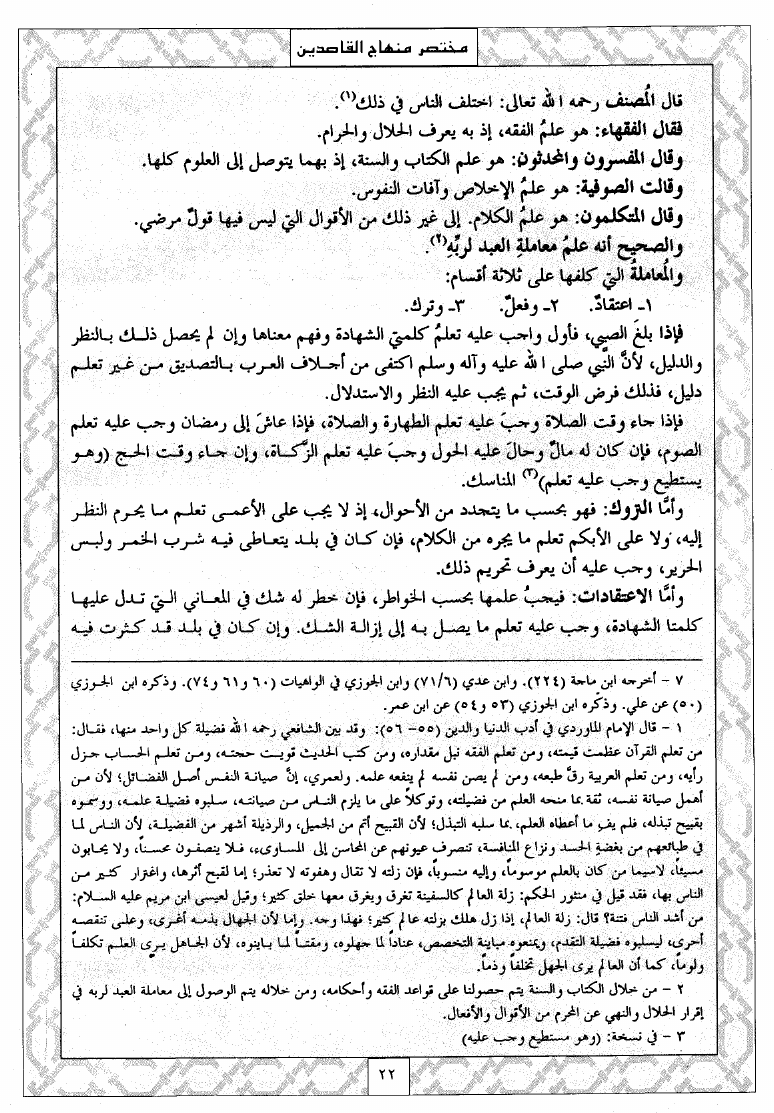 مختصر منهاج القاصدين
قال المُصنف رحمه الله تعالى: اختلف الناس في ذلك(١).
فقال الفقهاء: هو علمُ الفقه، إذ به يعرف الحلال والحرام.
وقال المفسرون والمحدثون: هو علم الكتاب والسنة، إذ بهما يتوصل إلى العلوم كلها.
وقالت الصوفية: هو علمُ الإخلاص وآفات النفوس.
وقال المتكلمون: هو علمُ الكلام. إلى غير ذلك من الأقوال التي ليس فيها قولٌ مرضي.
والصحيح أنه علمُ معاملةِ العبد لربِّهِ(٢).
والمُعاملةُ التي كلفها على ثلاثة أقسام:
١- اعتقادٌ. ٢- وفعلٌ. ٣- وترك.
فإذا بلغَ الصبي، فأول واجب عليه تعلمُ كلمتي الشهادة وفهم معناها وإن لم يحصل ذلك بالنظر
والدليل، لأنَّ النَّبي صلى الله عليه وآله وسلم اكتفى من أجلاف العرب بالتصديق من غير تعلم
دليل، فذلك فرض الوقت، ثم يجب عليه النظر والاستدلال.
فإذا جاء وقت الصلاة وجبَ عليه تعلم الطهارة والصلاة، فإذا عاشَ إلى رمضان وجب عليه تعلم
الصوم، فإن كان له مالٌ وحالَ عليه الحول وجبَ عليه تعلم الزَّكاة، وإن جاء وقت الحج (وهو
يستطيع وجب عليه تعلم)(٣) المناسك.
وأمَّا التروك: فهو بحسب ما يتجدد من الأحوال، إذ لا يجب على الأعمى تعلم ما يحرم النظر
إليه، ولا على الأبكم تعلم ما يحره من الكلام، فإن كان في بلد يتعاطى فيه شرب الخمر ولبس
الحرير، وجب عليه أن يعرف تحريم ذلك.
وأمَّا الاعتقادات: فيجبُ علمها بحسب الخواطر، فإن خطر له شك في المعاني التي تدل عليها
كلمتا الشهادة، وجب عليه تعلم ما يصل به إلى إزالة الشك. وإن كان في بلد قد كثرت فيه
٧ - أخرجه ابن ماجة (٢٢٤). وابن عدي (٧١/٦) وابن الجوزي في الواهيات (٦٠ و٦١ و٧٤). وذكره ابن الجوزي
(٥٠) عن علي. وذكره ابن الجوزي (٥٣ و٥٤) عن ابن عمر.
١ - قال الإمام الماوردي في أدب الدنيا والدين (٥٥- ٥٦): وقد بين الشافعي رحمه الله فضيلة كل واحد منها، فقال:
من تعلم القرآن عظمت قيمته، ومن تعلم الفقه نبل مقداره، ومن كتب الحديث قويت حجته، ومن تعلم الحساب جزل
رأيه، ومن تعلم العربية رقَّ طبعه، ومن لم يصن نفسه لم ينفعه علمه. ولعمري، إنَّ صيانة النفس أصل الفضائل؛ لأن من
أهمل صيانة نفسه، ثقة بما منحه العلم من فضيلته، وتوكلاً على ما يلزم الناس من صيانته، سلبوه فضيلة علمه، ووسموه
بقبيح تبذله، فلم يفِ ما أعطاه العلم، بما سلبه التبذل؛ لأن القبيح أتم من الجميل، والرذيلة أشهر من الفضيلة، لأن الناس لما
في طبائعهم من بغضةِ الحسد ونزاع المنافسة، تنصرف عيونهم عن المحاسن إلى المساوىء، فلا ينصفون محسناً، ولا يحابون
مسيئاً، لاسيما من كان بالعلم موسوماً، وإليه منسوباً، فإن زلته لا تقال وهفوته لا تعذر؛ إما لقبح أثرها، واغترار كثير من
الناس بها، فقد قيل في منثور الحكم: زلة العالم كالسفينة تغرق ويغرق معها خلق كثير؛ وقيل لعيسى ابن مريم عليه السلام:
من أشد الناس فتنة؟ قال: زلة العالم، إذا زل هلك بزلته عالم كثير؛ فهذا وجه. وإما لأن الجهال بذمه أغرى، وعلى تنقصه
أحرى، ليسلبوه فضيلة التقدم، ويمنعوه مباينة التخصص، عناداً لما جهلوه، ومقتاً لما باينوه، لأن الجاهل يرى العلم تكلفاً
ولوماً، كما أن العالم يرى الجهل تخلفاً وذماً.
٢ - من خلال الكتاب والسنة يتم حصولنا على قواعد الفقه وأحكامه، ومن خلاله يتم الوصول إلى معاملة العبد لربه في
إقرار الحلال والنهي عن المحرم من الأقوال والأفعال.
٣ - في نسخة: (وهو مستطيع وجب عليه)
٢٢